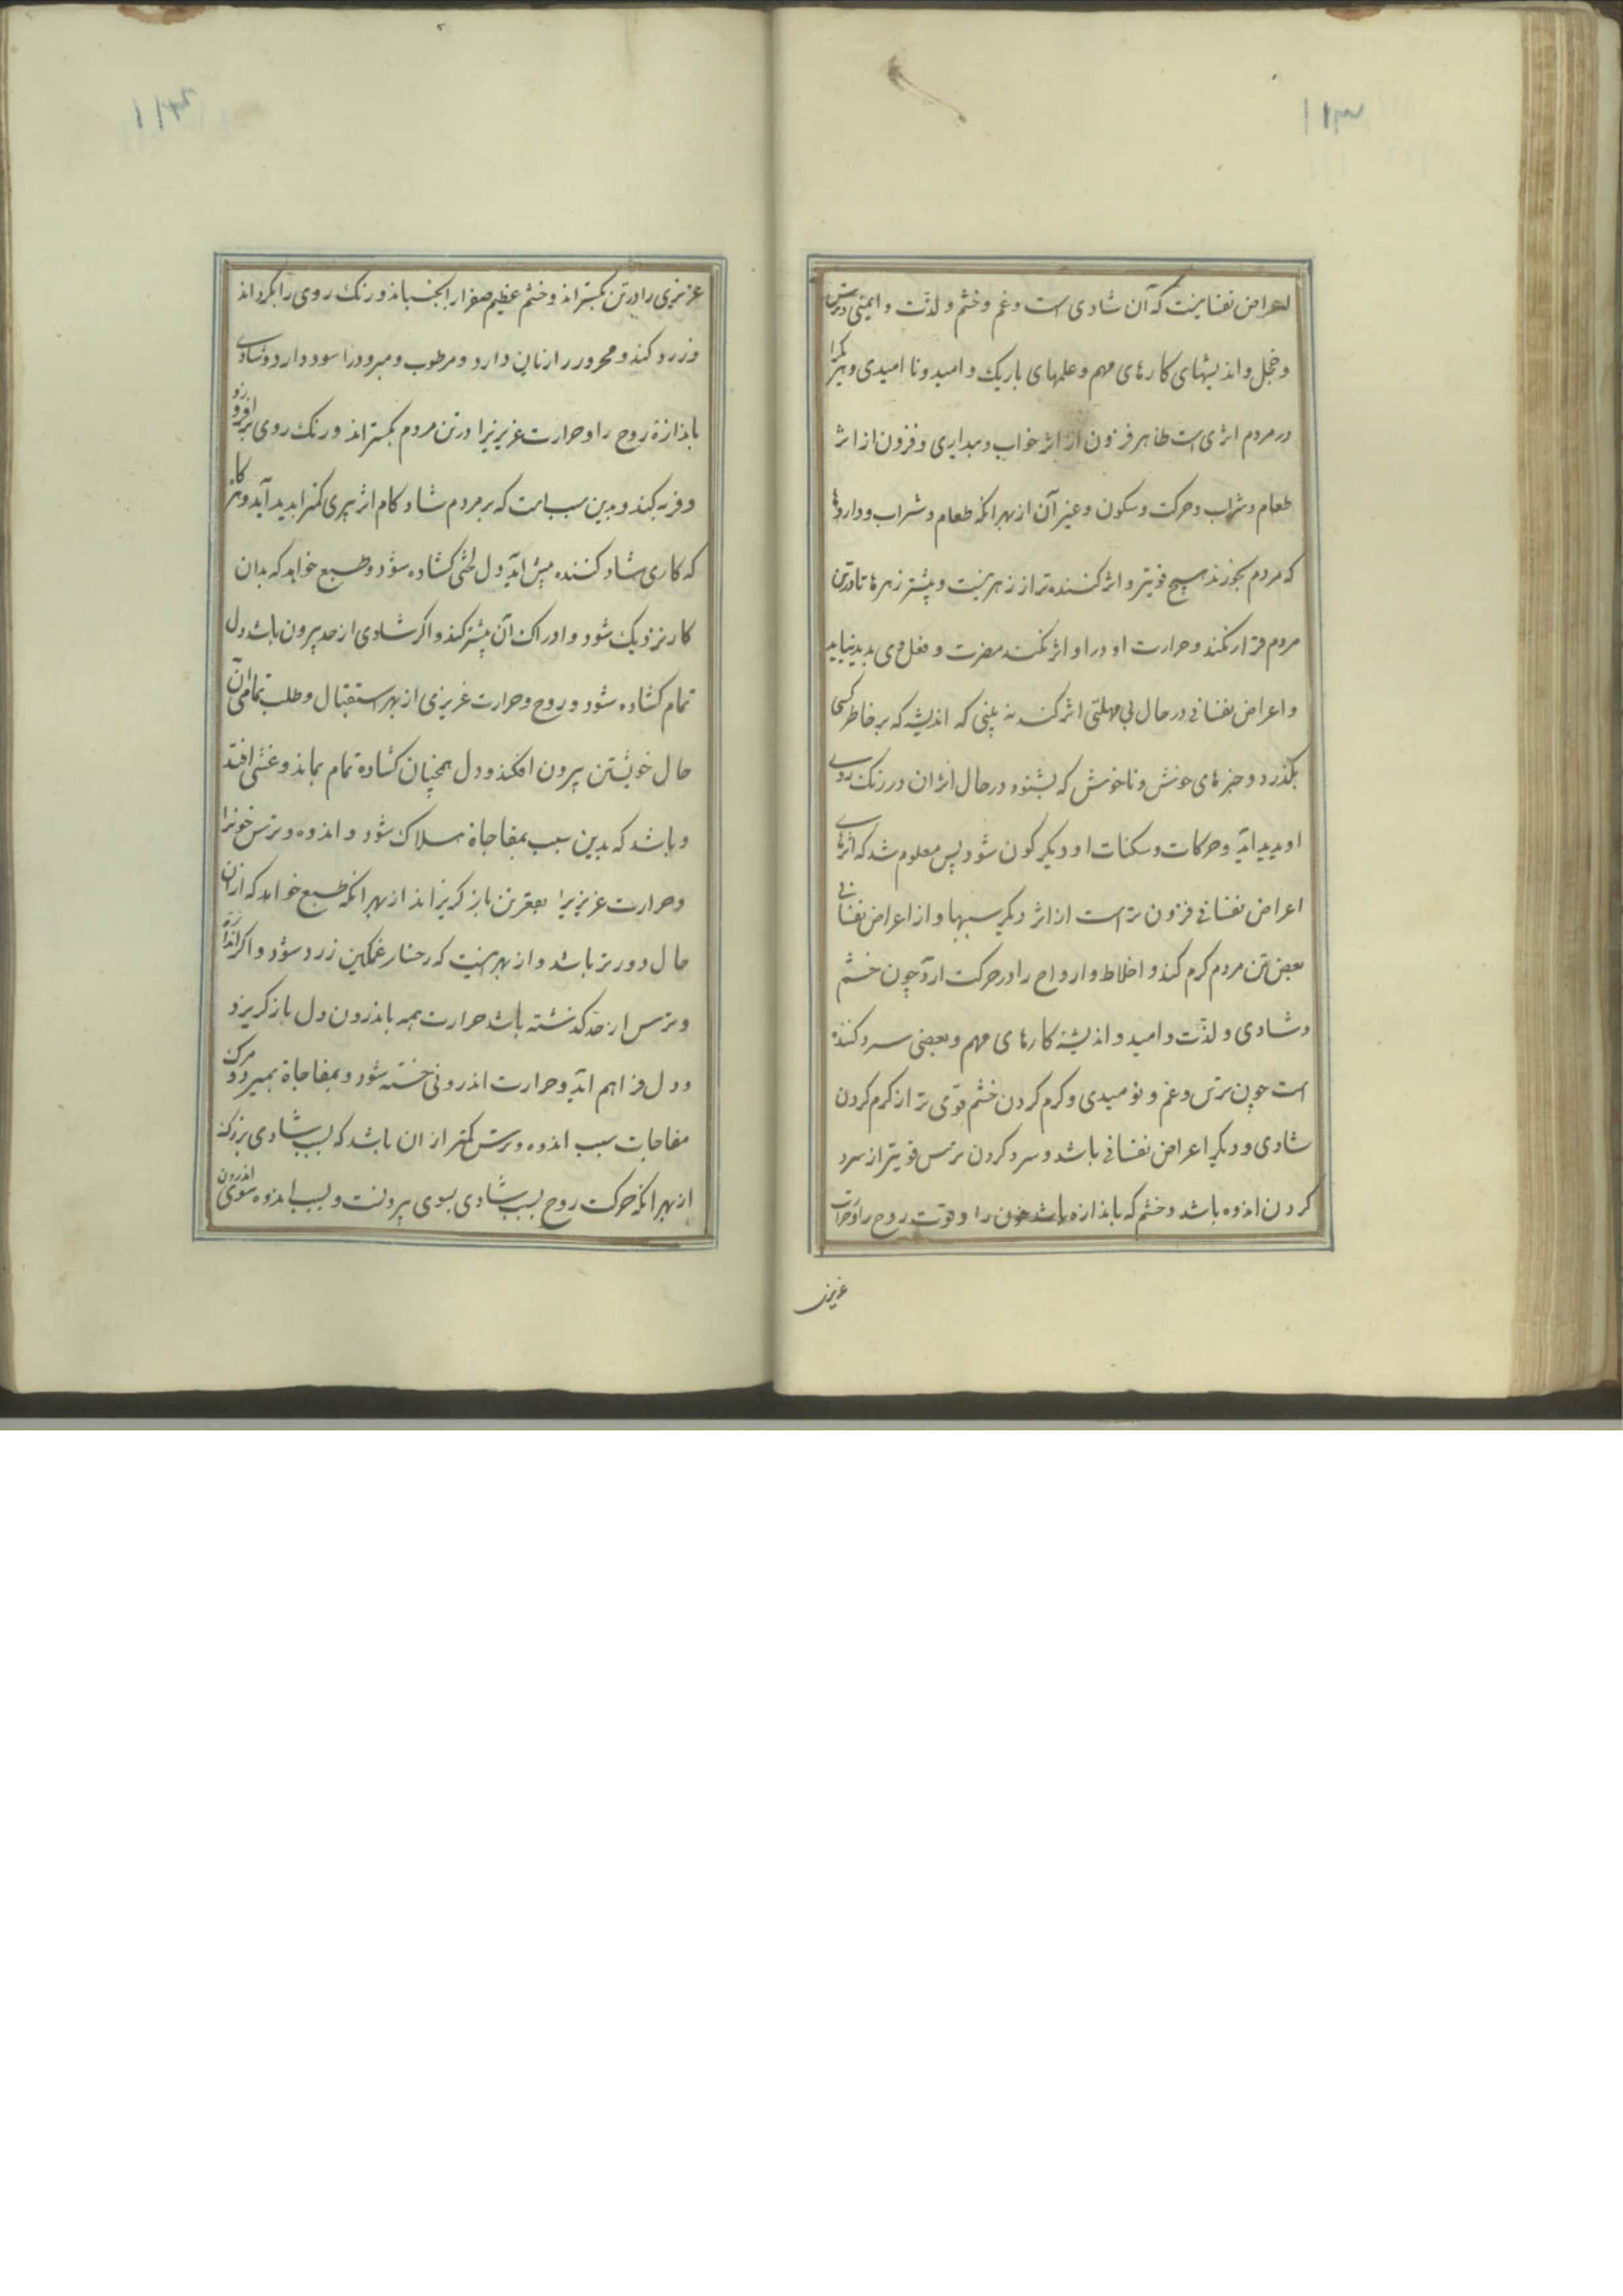 ۱۱۳
اعراض نفسانیست که آن شادی است و غم و خشم و لذّت و ایمنی و ترس
و خجل و اندیشهای کارهای مهم و علمهای باریک و امید و نا امیدی و هر یکرا
در مردم اثری است ظاهر فزون از اثر خواب و بیداری و فزون از اثر
طعام و شراب و حرکت و سکون و غیر آن از بهر انکه طعام و شراب و داروها
که مردم بخورند هیچ قویتر و اثر کننده تر از زهر نیست و بیشتر زهرها تا در تن
مردم قرار نکند و حرارت او در او اثر نکند مضرت و فعل وی بدید نیاید
و اعراض نفسانی در حال بی مهلتی اثر کند نه بینی که اندیشه که بر خاطر کسی
بکذرد و خبرهای خوش و ناخوش که بشنود در حال اثر ان در رنک روی
او بدید آید و حرکات و سکنات او دیکر کون شود پس معلوم شد که اثرهای
اعراض نفسانی فزون تر است از اثر دیکر سببها و از اعراض نفسانی
بعضی تن مردم کرم کند و اخلاط و ارواح را در حرکت آرد چون خشم
و شادی و لذّت و امید و اندیشهٔ کارهای مهم و بعضی سرد کننده
است چون ترس و غم و نومیدی و کرم کردن خشم قوی تر از کرم کردن
شادی و دیکر اعراض نفسانی باشد و سرد کردن ترس قویتر از سرد
کردن اندوه باشد و خشم که باندازه باشد خون را و قوت روح را و حرارت
غریزی
۱۱۴
غریزی را در تن بکستراند و خشم عظیم صفرا را بجنباند و رنک روی را بکرداند
و زرد کند و محرور را زیان دارد و مرطوب و مبرود را سود دارد و شادی
باندازهٔ روح را و حرارت غریزیرا در تن مردم بکستراند و رنک روی بر افروزد
و فربه کند و بدین سبب است که بر مردم شاد کام اثر پیری کمتر ابدید آید و هر کاه
که کاری شاد کننده پیش آید دل لختی کشاده شود و طبع خواهد که بدان
کار نزدیک شود و ادراک آن بیشتر کند و اکر شادی از حد بیرون باشد دل
تمام کشاده شود و روح و حرارت غریزی از بهر استقبال و طلب تمامی آن
حال خویشتن بیرون افکند و دل همچنان کشاده تمام بماند و غشی افتد
و باشد که بدین سبب بمفاجاة هلاک شود و اندوه و ترس خونرا
و حرارت غریزیرا بقعر تن باز کریزاند از بهر انکه طبع خواهد که از ان
حال دورتر باشد و از بهر اینست که رخسار غمکین زرد شود و اکر اندازهٔ
و ترس از حدّ کذشته باشد حرارت همه باندرون دل باز کریزد
و دل فراهم اید و حرارت اندرونی خسته شود و بمفاجاة بمیرد و مرک
مفاجات سبب اندوه و ترس کمتر از ان باشد که بسبب شادی بزرک
از بهر انکه حرکت روح بسبب شادی بسوی بیرونست و بسبب اندوه سوی اندرون